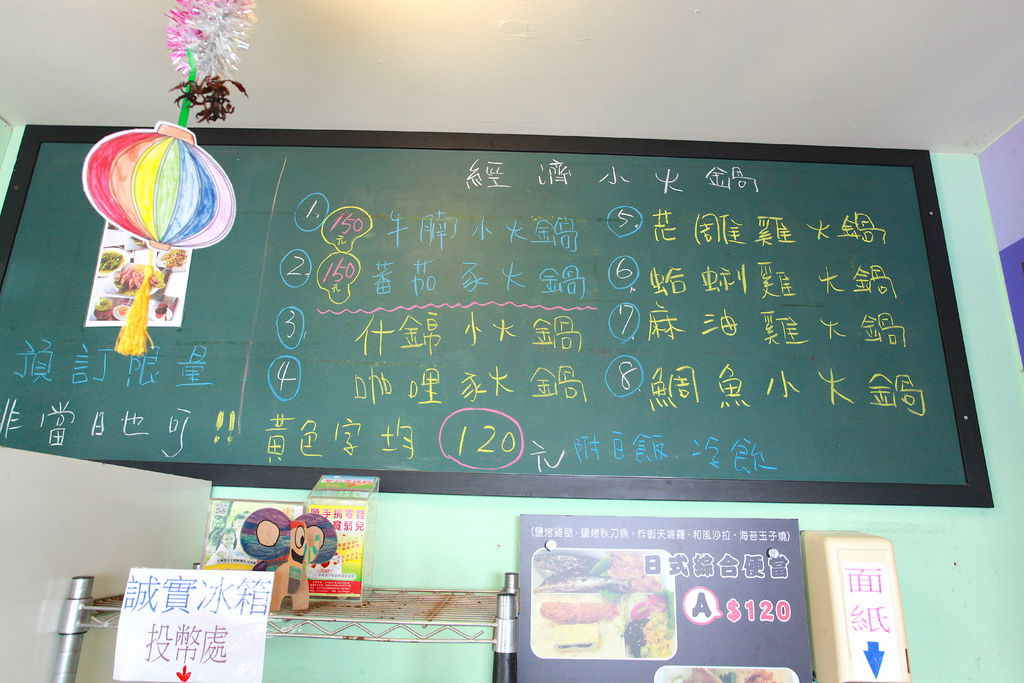 經濟小火鍋
1. 150元 牛腩小火鍋
2. 150元 蕃茄豕火鍋
3 什錦小火鍋
4 咖哩豕火鍋
5. 芒雕雞火鍋
6. 蛤蜊雞火鍋
7. 麻油雞火鍋
8 鯛魚小火鍋
預訂限量
非當日也可!!
黃色字均 120 元 附白飯.冷飲
順手捐零錢
貧弱兒
誠實冰箱
投幣處
(鹽烤雞腿.鹽烤秋刀魚.炸蝦天婦羅.和風沙拉.海苔玉子燒)
日式綜合便當
A $120
面紙